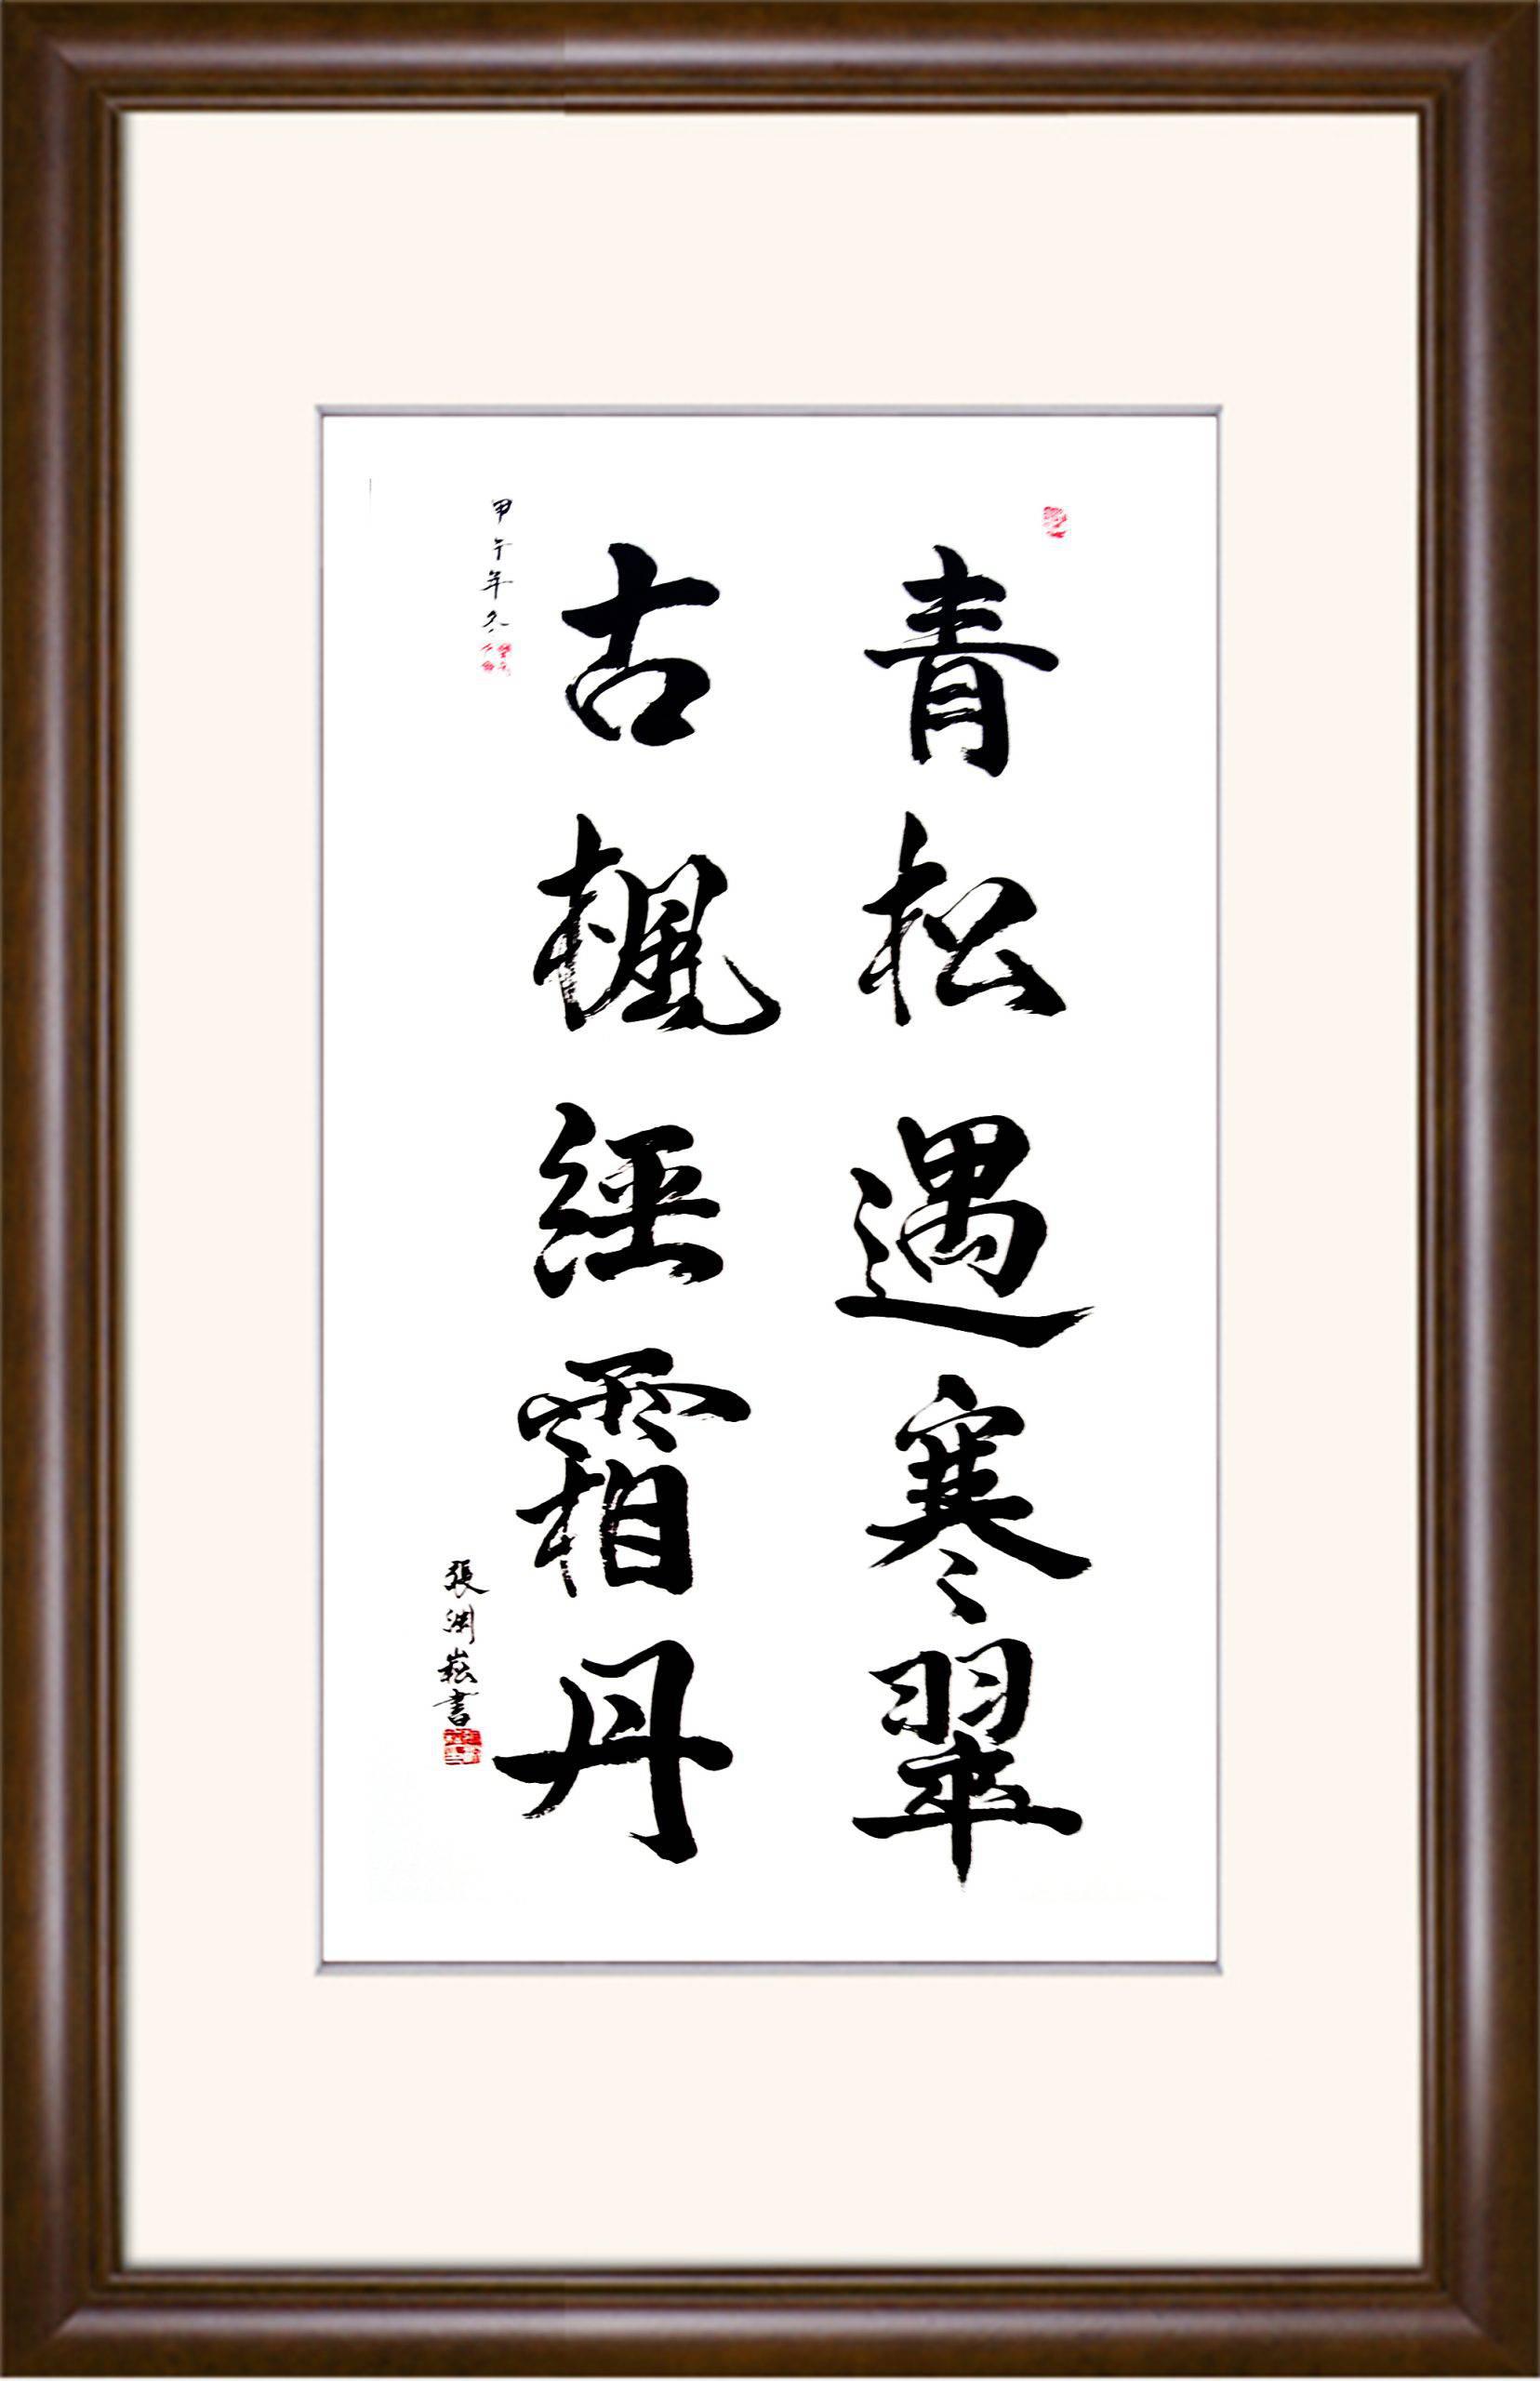 青松遇寒翠
古楓經霜丹
甲午年冬
張渊崧書